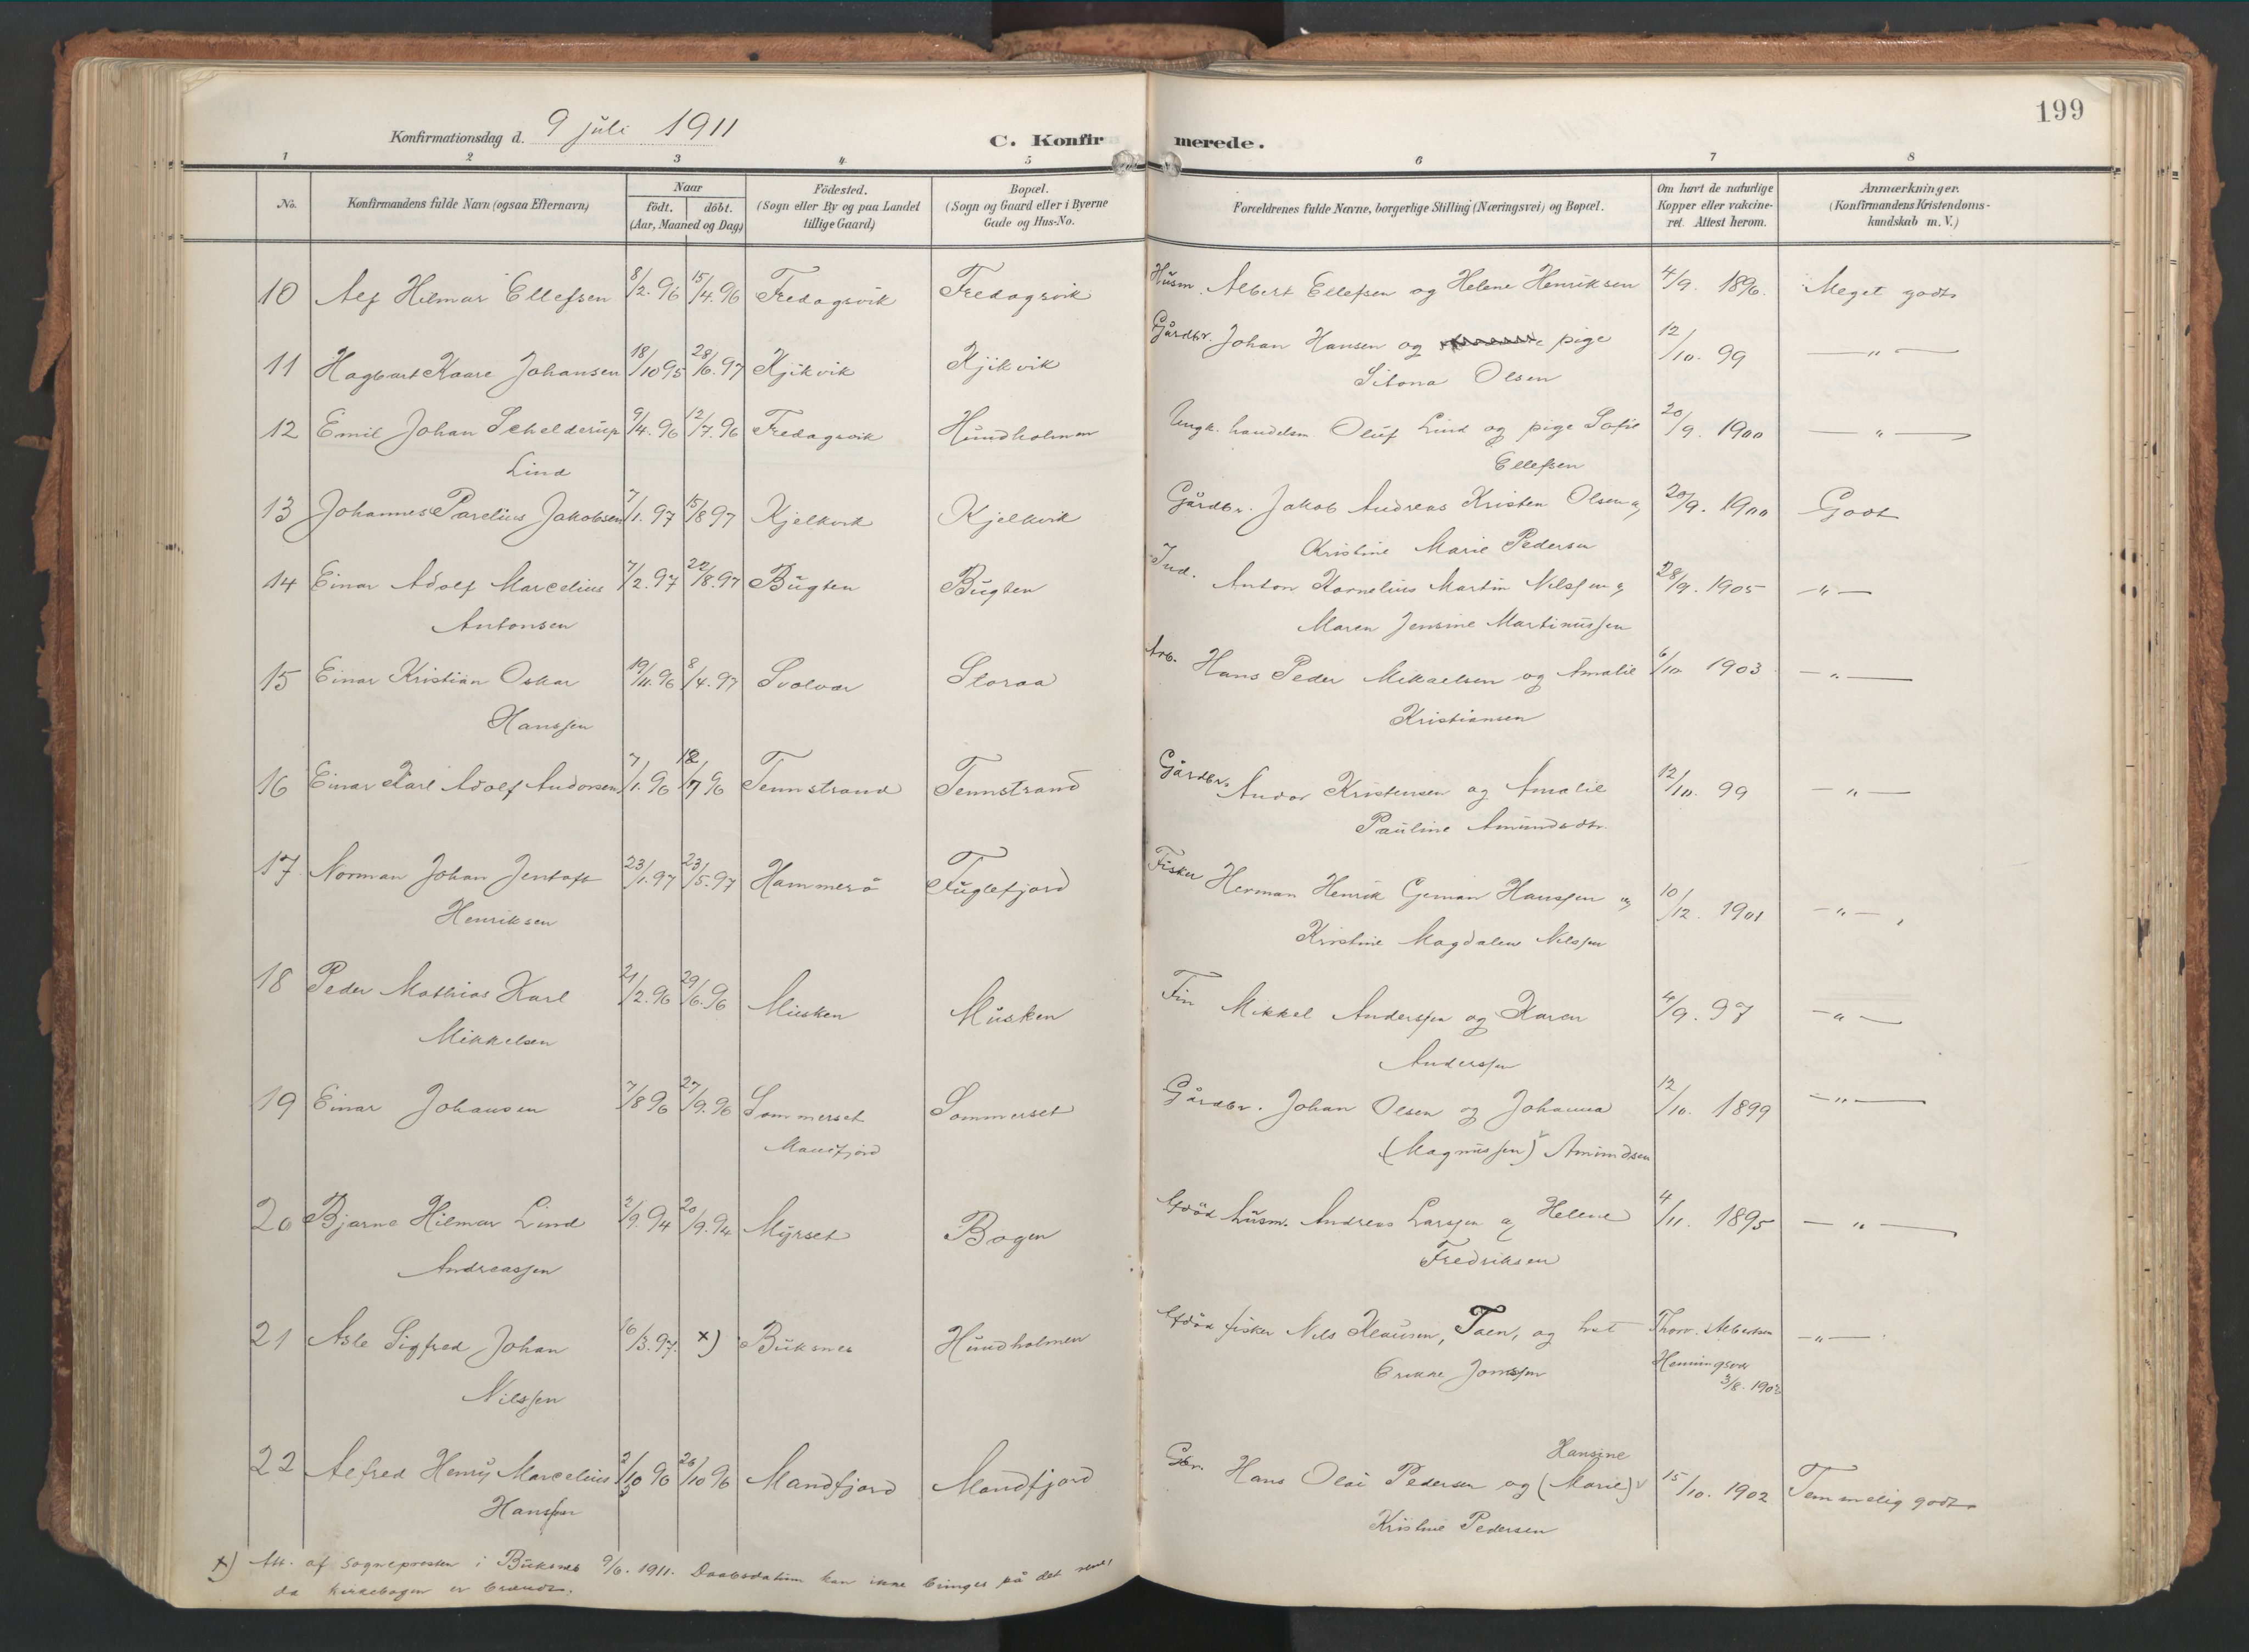 199
Konfirmationsdag d. 9 juli 1911
C. Konfirmerede.
1 2 3 4 5 6 7 8
No. Konfirmandens fulde Navn (ogsaa Efternavn) Naar födt. döbt. (Aar, Maaned og Dag) Födested. (Sogn eller By og paa Landet tillige Gaard) Bopæl. (Sogn og Gaard eller i Byerne Gade og Hus-No. Forældrenes fulde Navne, borgerlige Stilling (Næringsvei) og Bopæl. Om havt de naturlige Kopper eller vakcineret. Attest herom. Anmærkninger. (Konfirmandens Kristendomskundskab m. V.)
10 Alf Hilmar Ellefsen 8/2. 96 15/4. 96 Fredagsvik Fredagsvik Husm. Albert Ellefsen og Helene Henriksen 4/9. 1896. Meget godt
11 Hagbart Kaare Johansen 18/10 95 28/6. 97 Kjikvik Kjikvik Gårdbr. Johan Hansen og pige 12/10. 99 — " —
Sitona Olsen
12 Emil Johan Schelderup 9/4. 96 12/7. 96 Fredagsvik Hundholmen Ungk. handelsm. Oluf Lind og pige Sofie 20/9. 1900 — " —
Lind Ellefsen
13 Johannes Parelius Jakobsen 7/1. 97 15/8 97 Kjelkvik Kjelkvik Gårdbr. Jakob Andreas Kristen Olsen og 20/9. 1900 Godt
Kristine Marie Pedersen
14 Einar Adolf Marcelius 7/2. 97 22/8. 97 Bugten Bugten Ind. Anton Kornelius Martin Nilssen og 28/9. 1905 — " —
Antonsen Maren Jensine Martinussen
15 Einar Kristian Oskar 19/11. 96 8/4. 97 Svolvær Storaa Arb. Hans Peder Mikaelsen og Amalie 6/10 1903 — " —
Hanssen Kristiansen
16 Einar Karl Adolf Andorsen 7/1. 96 12/7 96 Tennstrand Tennstrand Gårdbr. Andor Kristensen og Amalie 12/10. 99 — " —
Pauline Amundsdtr.
17 Norman Johan Jentoft 23/1. 97 23/5. 97 Hammerö Fuglefjord Fisker Herman Henrik German Hanssen og 10/12. 1901 — " —
Henriksen Kristine Magdalene Nilssen
18 Peder Mathias Karl 21/2. 96 29/6. 96 Musken Musken Fin Mikkel Anderssen og Karen 4/9. 97 — " —
Mikkelsen Anderssen
19 Einar Johansen 7/8 96 27/9. 96 Sommerset Sommerset Gårdbr. Johan Olsen og Johanna 12/10. 1899 — " —
Mandfjord (Magnussen) Amundsen
20 Bjarne Hilmar Lind 2/9. 94 20/9. 94 Myrset Bogen Afdöd husm. Andreas Larssen og Helene 4/11. 1895 — " —
Andreassen Fredriksen
21 Asle Sigfred Johan 16/3. 97. ×) Buksnes Hundholmen Afdöd fisker Nils Klausen, Taen, og hst Thorv. Albertsen — " —
Nilssen Erikke Jonssen Henningsvær 3/8. 1902
22 Alfred Henry Marcelius 2/10 96 26/10 96 Mandfjord Mandfjord Gbr. Hans Olai Pedersen og (Marie) Hansine 15/10. 1902 Temmelig godt
Hanssen Kristine Pedersen
×) Att. af sognepresten i Buksnes 9/6. 1911. Daabsdatum kan ikke bringes på det rene!
da kirkebogen er brændt.